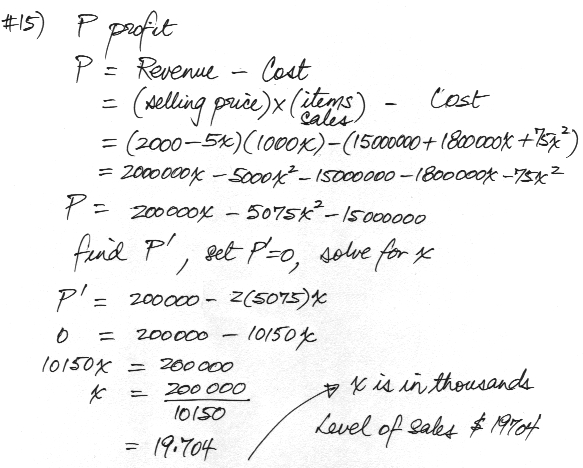 #15) P profit
P = Revenue - Cost
= (selling price) x (items sales) - Cost
= (2000-5x)(1000x)-(15000000+1800000x+75x²)
= 2000000x - 5000x² - 15000000 - 1800000x - 75x²
P = 200000x - 5075x² - 15000000
find P', set P'=0, solve for x
P' = 200000 - 2(5075)x
0 = 200000 - 10150x
10150x = 200000
x = 200 000 / 10150
= 19.704
→ x is in thousands
Level of sales $ 19704